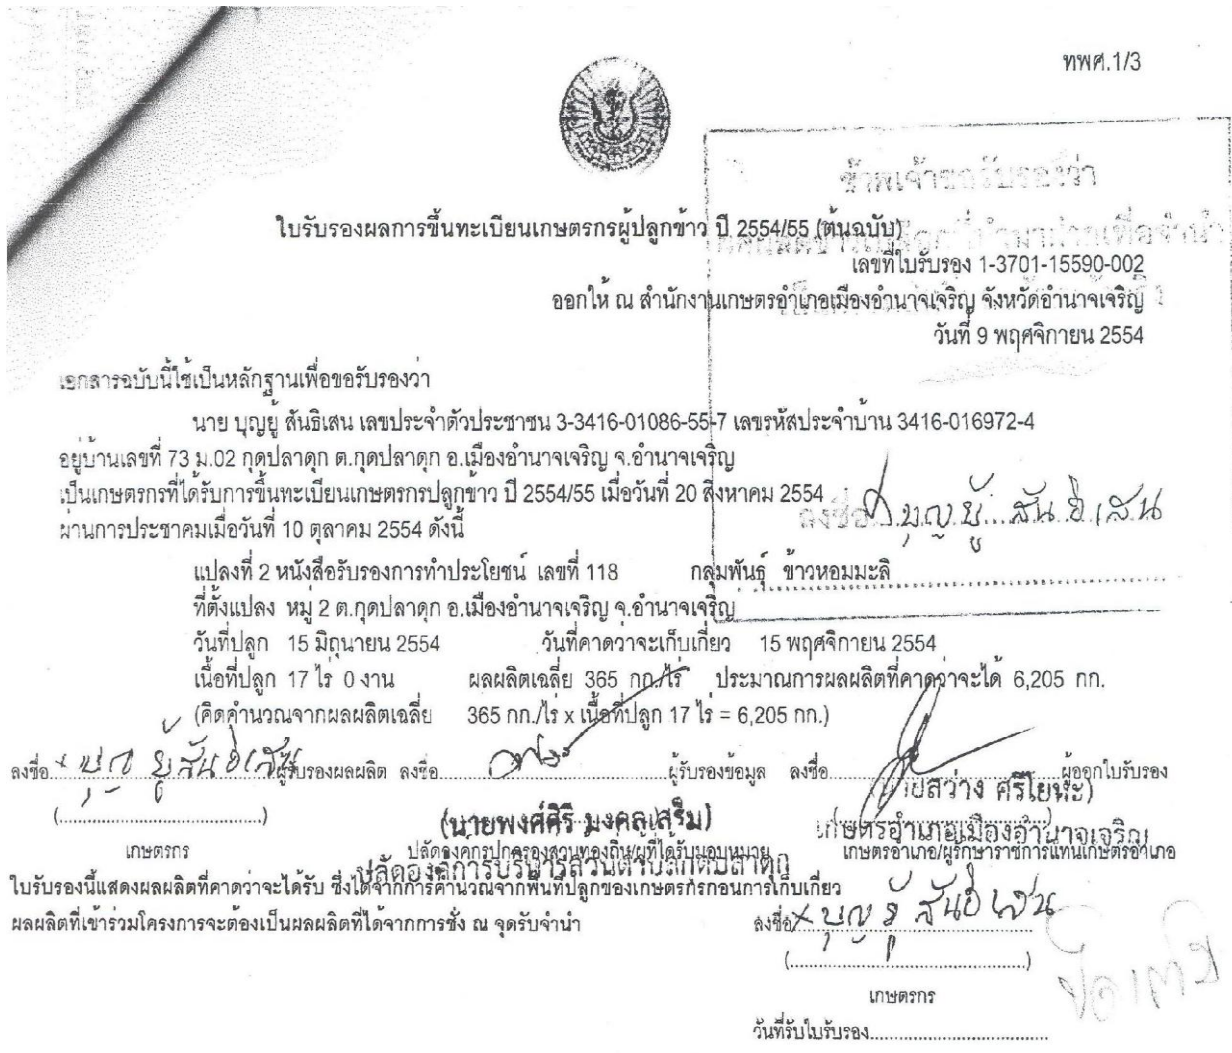 ทพศ.1/3
ข้าพเจ้าขอรับรองว่า
ใบรับรองผลการขึ้นทะเบียนเกษตรกรผู้ปลูกข้าว ปี 2554/55 (ต้นฉบับ)
เลขที่ใบรับรอง 1-3701-15590-002
ออกให้ ณ สำนักงานเกษตรอำเภอเมืองอำนาจเจริญ จังหวัดอำนาจเจริญ
วันที่ 9 พฤศจิกายน 2554
เอกสารฉบับนี้ใช้เป็นหลักฐานเพื่อขอรับรองว่า
นาย บุญยู้ สันธิเสน เลขประจำตัวประชาชน 3-3416-01086-55-7 เลขรหัสประจำบ้าน 3416-016972-4
อยู่บ้านเลขที่ 73 ม.02 กุดปลาดุก ต.กุดปลาดุก อ.เมืองอำนาจเจริญ จ.อำนาจเจริญ
เป็นเกษตรกรที่ได้รับการขึ้นทะเบียนเกษตรกรปลูกข้าว ปี 2554/55 เมื่อวันที่ 20 สิงหาคม 2554
ผ่านการประชาคมเมื่อวันที่ 10 ตุลาคม 2554 ดังนี้
ลงชื่อ บุญยู้ สันธิเสน
แปลงที่ 2 หนังสือรับรองการทำประโยชน์ เลขที่ 118 กลุ่มพันธุ์ ข้าวหอมมะลิ
ที่ตั้งแปลง หมู่ 2 ต.กุดปลาดุก อ.เมืองอำนาจเจริญ จ.อำนาจเจริญ
วันที่ปลูก 15 มิถุนายน 2554 วันที่คาดว่าจะเก็บเกี่ยว 15 พฤศจิกายน 2554
เนื้อที่ปลูก 17 ไร่ 0 งาน ผลผลิตเฉลี่ย 365 กก./ไร่ ประมาณการผลผลิตที่คาดว่าจะได้ 6,205 กก.
(คิดคำนวณจากผลผลิตเฉลี่ย 365 กก./ไร่ x เนื้อที่ปลูก 17 ไร่ = 6,205 กก.)
ลงชื่อ บุญยู้ สันธิเสน ผู้รับรองผลผลิต ลงชื่อ ผู้รับรองข้อมูล ลงชื่อ ผู้ออกใบรับรอง
(นายพงศ์ศิริ มงคลเสริม) นายสว่าง ศรีโยหะ)
เกษตรกร ปลัดองค์กรปกครองส่วนท้องถิ่น/ผู้ที่ได้รับมอบหมาย เกษตรอำเภอ/ผู้รักษาราชการแทนเกษตรอำเภอ
เกษตรอำเภอเมืองอำนาจเจริญ
ปลัดองค์การบริหารส่วนตำบลกุดปลาดุก
ใบรับรองนี้แสดงผลผลิตที่คาดว่าจะได้รับ ซึ่งได้จากการคำนวณจากพื้นที่ปลูกของเกษตรกรก่อนการเก็บเกี่ยว
ผลผลิตที่เข้าร่วมโครงการจะต้องเป็นผลผลิตที่ได้จากการชั่ง ณ จุดรับจำนำ
ลงชื่อ บุญยู้ สันธิเสน
เกษตรกร
วันที่รับใบรับรอง